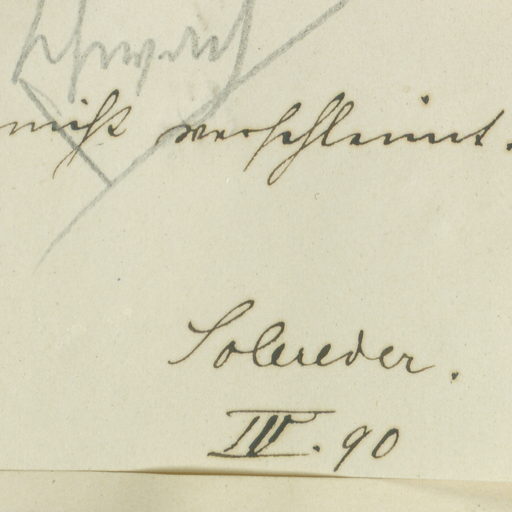 schwach
nicht verschleimt.
Solereder.
IV. 90